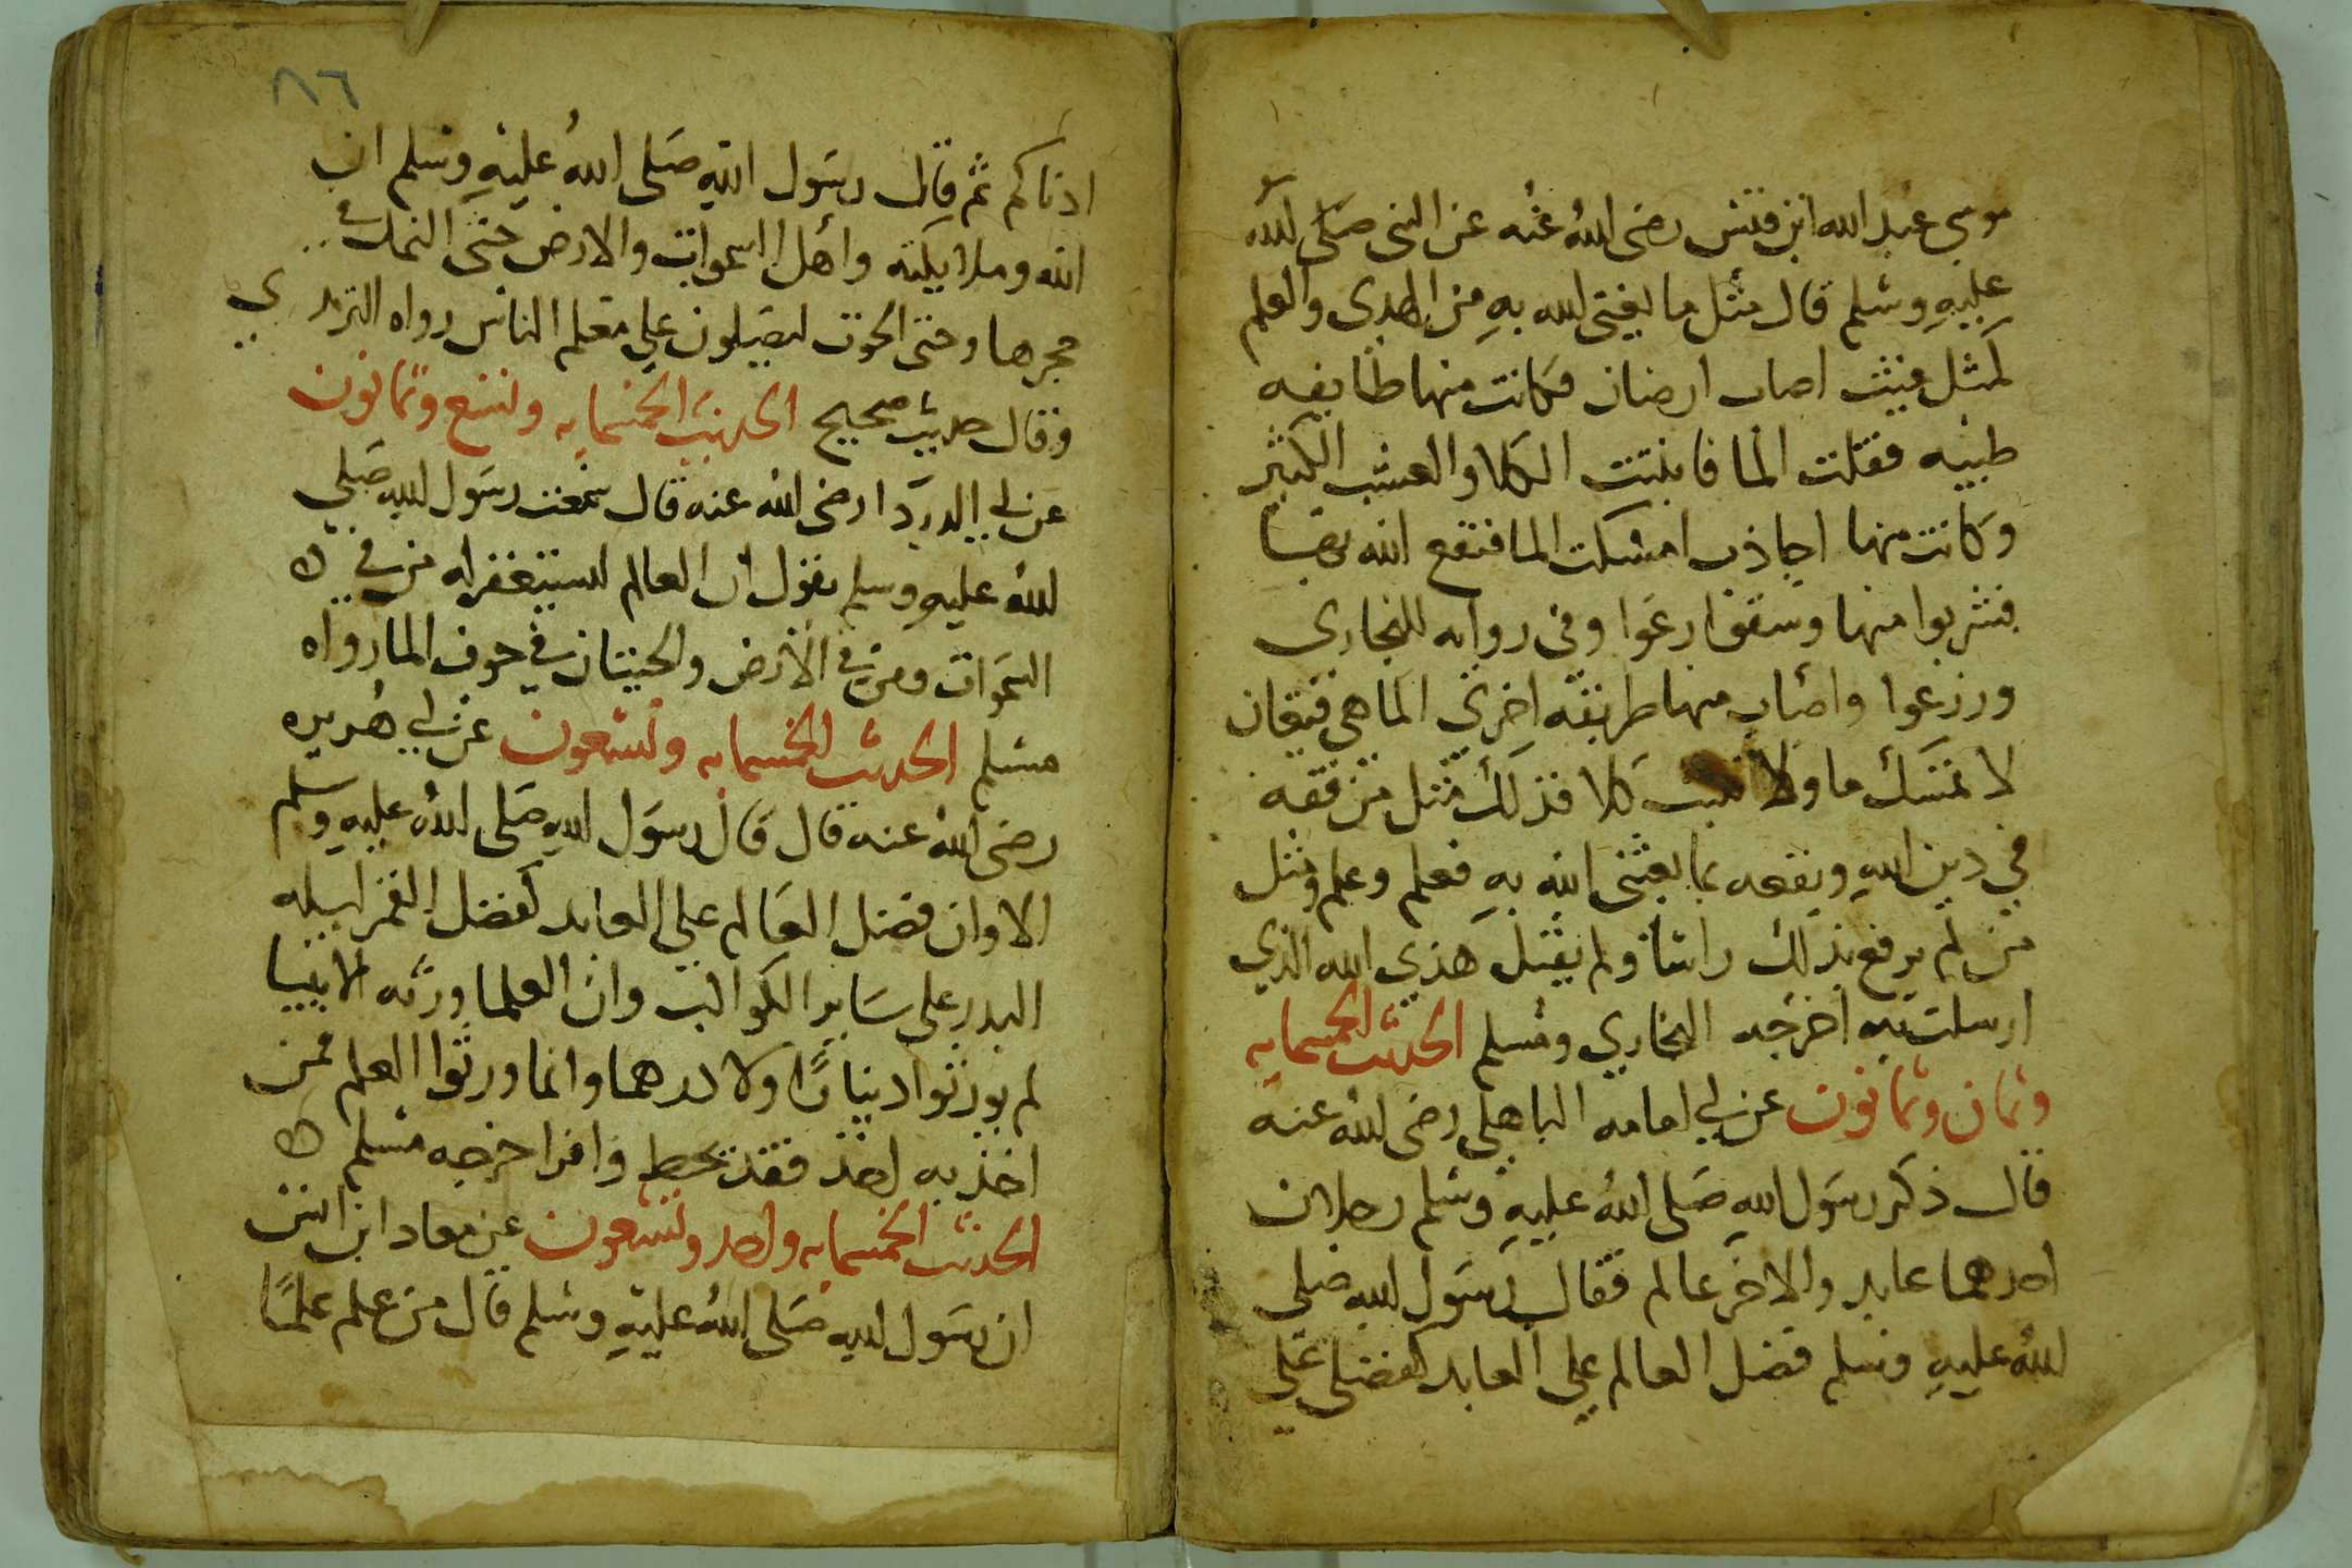 موسى عبد الله ابن قيس رضى الله عنه عن النبى صلى الله
عليه وسلم قال مثل ما بعثنى الله به من الهدى والعلم
كمثل غيث اصاب ارضان فكانت منها طايفه
طيبه فقبلت الما فانبتت الكلا والعشب الكثير
وكانت منها اجاذب امسكت الما فنفع الله بها
فشربوا منها وسقوا رعوا وفى روايه للبخارى
ورزعوا واصاب منها طايفه اخرى الما هى قيعان
لا تمسك ما ولا تنبت كلا فذلك مثل من فقه
في دين الله ونفعه بما بعثنى الله به فعلم وعلم ومثل
من لم يرفع بذلك راسًا ولم يقبل هدي الله الذي
ارسلت به اخرجه البخاري ومسلم الحديث الخمسمايه
وثمان وثمانون عن ابي امامه الباهلي رضى الله عنه
قال ذكر رسول الله صلى الله عليه وسلم رجلان
احدهما عابد والاخر عالم فقال رسول الله صلى
الله عليه وسلم فضل العالم على العابد كفضلى على
٨٦
ادناكم ثم قال رسول الله صلى الله عليه وسلم ان
الله وملايكته واهل السموات والارض حتى النمله في
حجرها وحتى الحوت ليصلون على معلم الناس رواه الترمدي
وقال حديث صحيح الحديث الخمسمايه وتسع وثمانون
عن ابي الدردا رضى الله عنه قال سمعت رسول الله صلى
الله عليه وسلم يقول ان العالم ليستغفر له من في
السموات ومن في الارض والحيتان في جوف الما رواه
مسلم الحديث الخمسمايه وتسعون عن ابي هريره
رضى الله عنه قال قال رسول الله صلى الله عليه وسلم
الا وان فضل العالم على العابد كفضل القمر ليله
البدر على ساير الكواكب وان العلما ورثه الانبيا
لم يورثوا دينارًا ولا درهما وانما ورثوا العلم فمن
اخذ به اخذ فقد بحط وافر اخرجه مسلم
الحديث الخمسمايه واحد وتسعون عن معاد ابن انس
ان رسول الله صلى الله عليه وسلم قال من علم علمًا